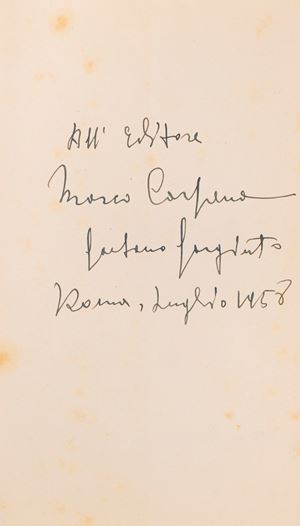 All' Editore
Marco Carpena
Gaetano
Roma, Luglio 1958